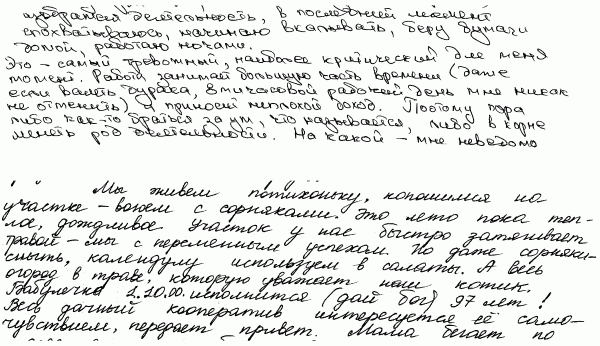 избралися деятельность, в последний момент
спохватываюсь, начинаю вкалывать, беру бумаги
домой, работаю ночами.
Это - самый тревожный, наиболее критический для меня
момент. Работа занимает большую часть времени (даже
если валять дурака, 8-ми часовой рабочий день мне никак
не отменить) и приносит неплохой доход. Поэтому пора
либо как-то браться за ум, что называется, либо в корне
менять род деятельности. На какой - мне неведомо
Мы живем потихоньку, копошимся на
участке - воюем с сорняками. Это лето пока теп-
лое, дождливое участок у нас быстро затягивает
травой - мы с переменным успехом. Но даже сорняки -
сныть, календулу используем в салаты. А весь
огород в траве, которую уважает наш котик.
Бабулечке 2.10.00. исполнится (дай бог) 97 лет!
Весь дачный кооператив интересуется её само-
чувствием, передает привет. Мама бегает по